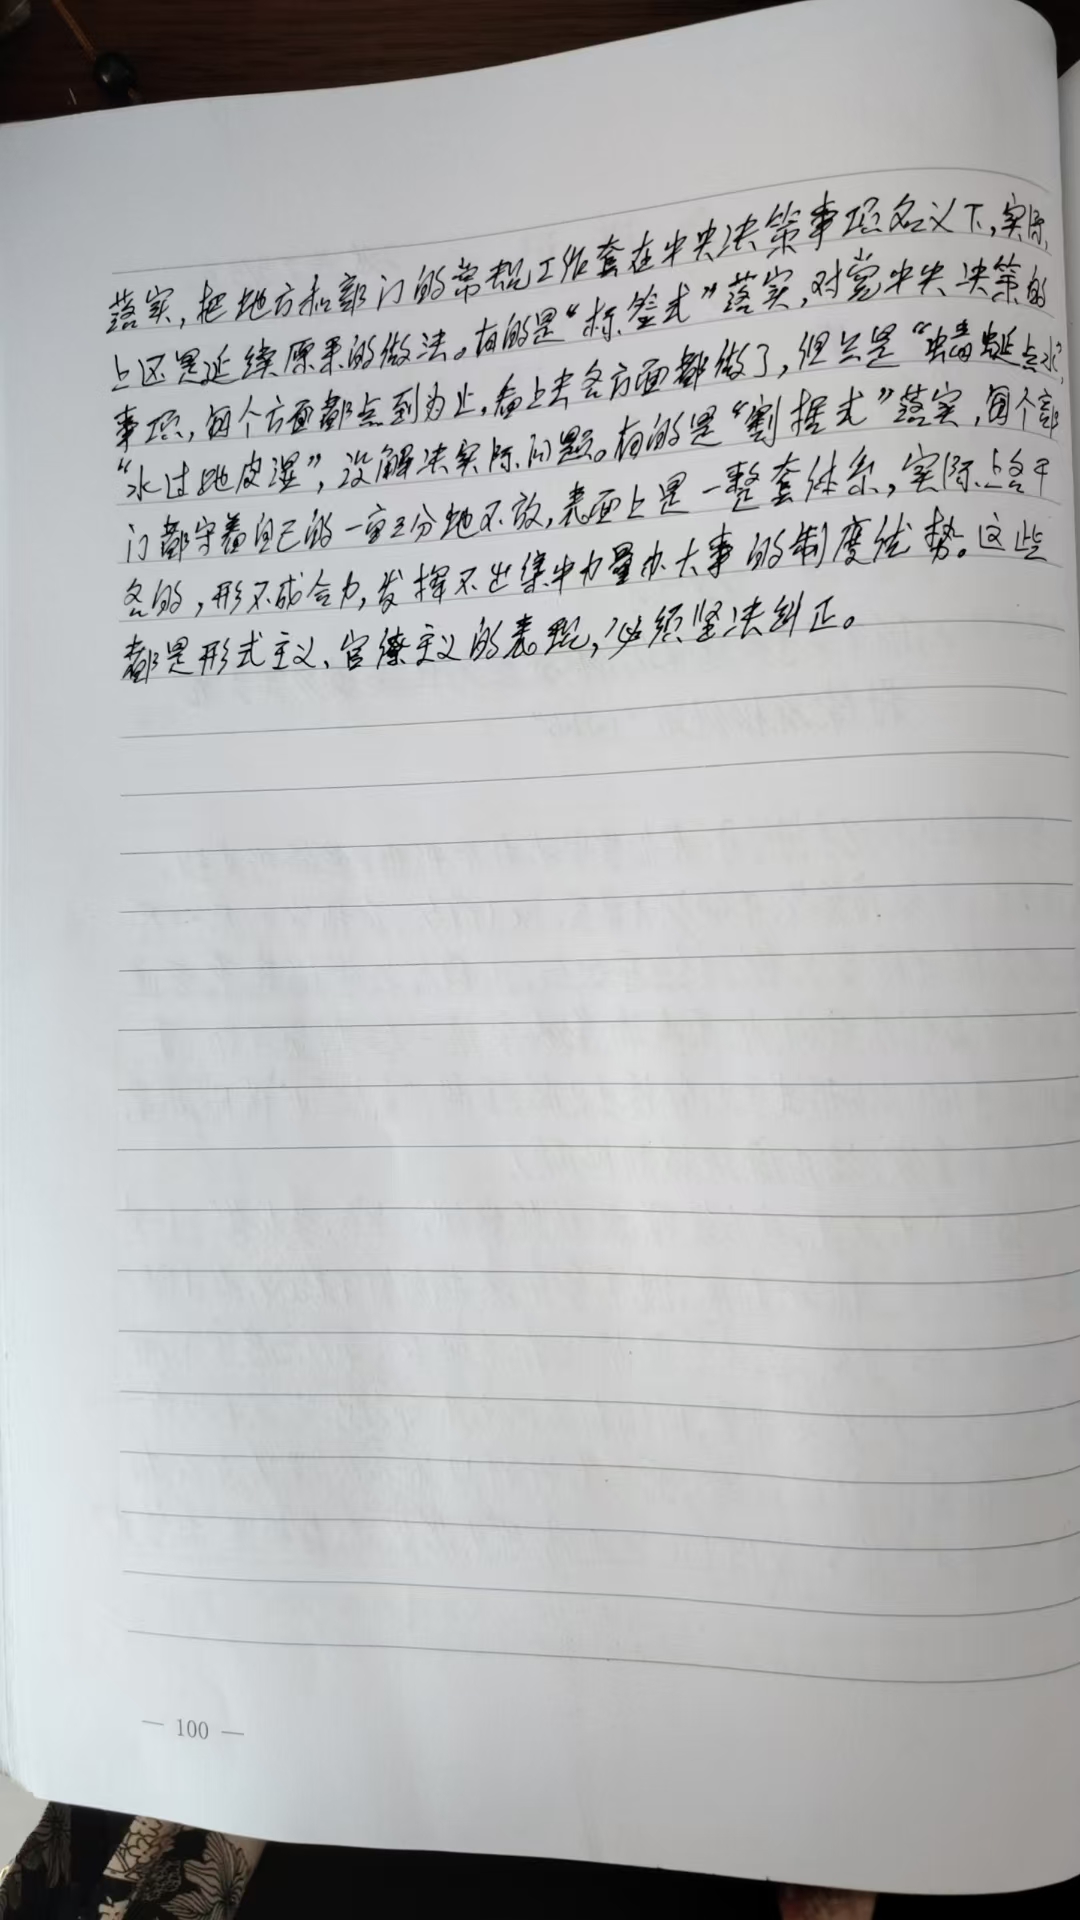 落实，把地方和部门的常规工作套在中央决策事项名义下，实际
上还是延续原来的做法。有的是“标签式”落实，对党中央决策的
事项，每个方面都点到为止，看上去各方面都做了，但只是“蜻蜓点水”，
“水过地皮湿”，没解决实际问题。有的是“割据式”落实，每个部
门都守着自己的一亩三分地不放，表面上是一整套体系，实际上各干
各的，形不成合力，发挥不出集中力量办大事的制度优势。这些
都是形式主义、官僚主义的表现，必须坚决纠正。
— 100 —